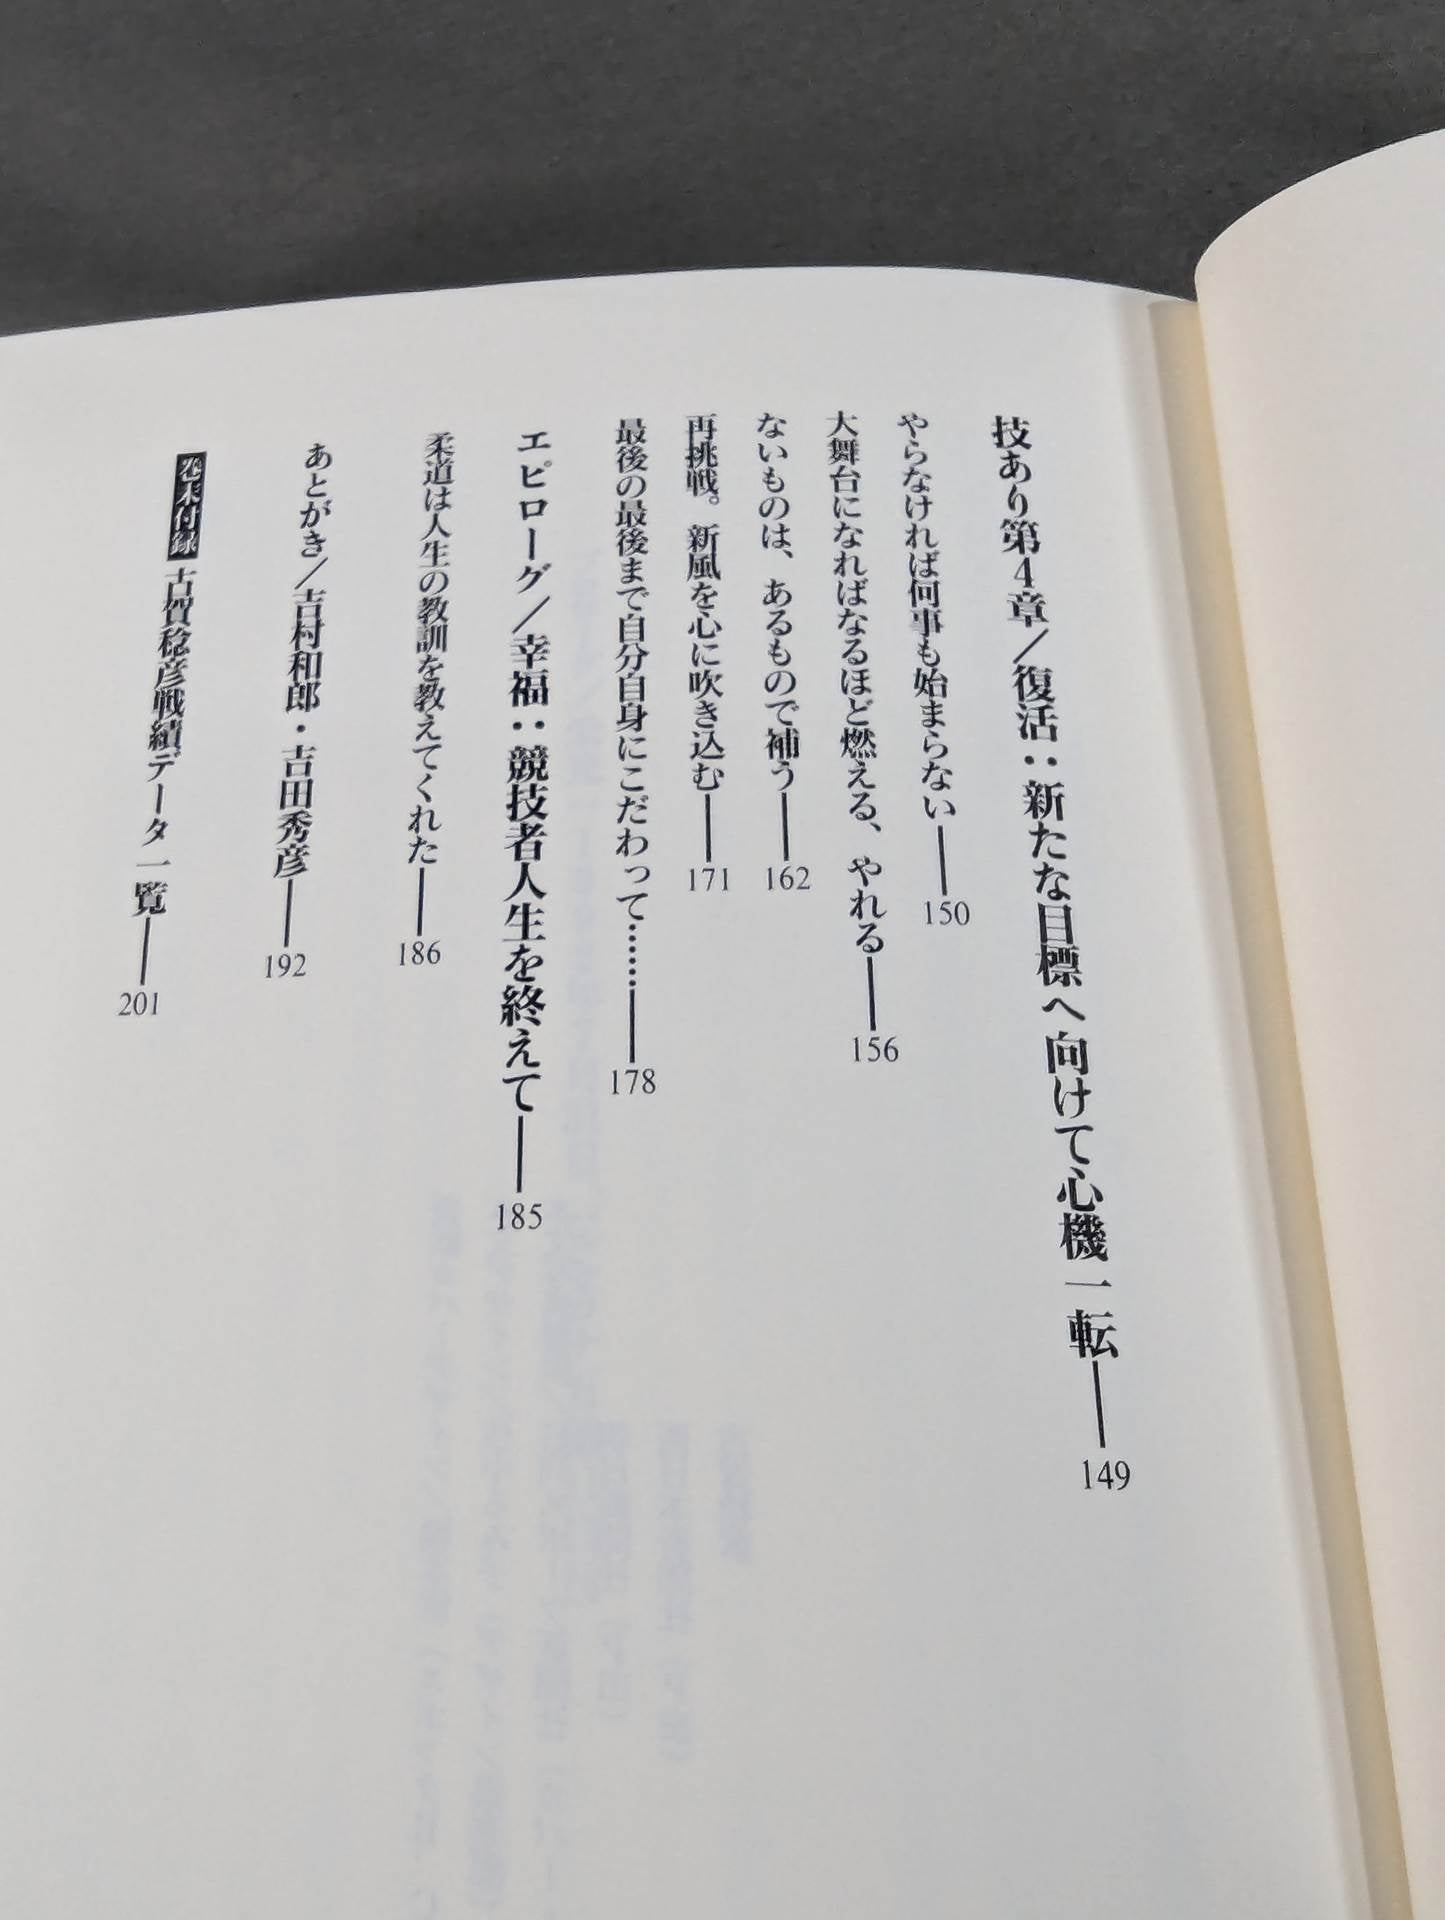 技あり第4章／復活：新たな目標へ向けて心機一転――149
やらなければ何事も始まらない――150
大舞台になればなるほど燃える、やれる――156
ないものは、あるもので補う――162
再挑戦。新風を心に吹き込む――171
最後の最後まで自分自身にこだわって……――178
エピローグ／幸福：競技者人生を終えて――185
柔道は人生の教訓を教えてくれた――186
あとがき／吉村和郎・吉田秀彦――192
巻末付録 古賀稔彦戦績データ一覧――201